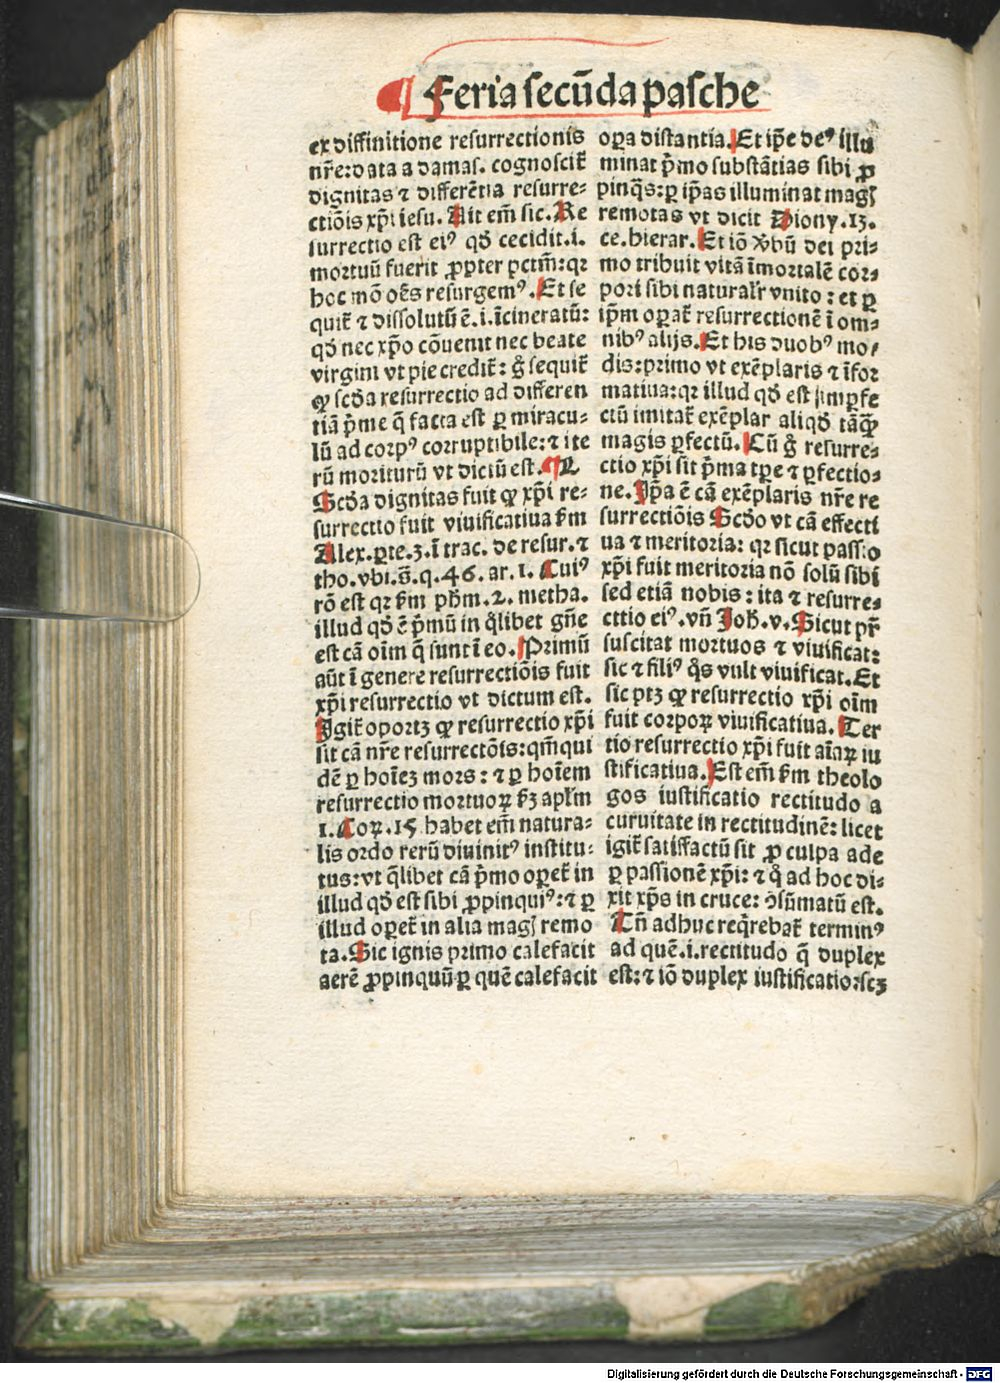 ¶ Feria secūda pasche
ex diffinitione resurrectionis
nr̄e: data a damas. cognoscit̄
dignitas ⁊ differētia resurre⸗
ctiōis xp̄i iesu. Ait em̄ sic. Re
surrectio est eiꝰ qd̄ cecidit .i.
mortuū fuerit ꝓpter pctm̄: qꝛ
hoc mō oēs resurgemꝰ. Et se
quit̄ ⁊ dissolutū ē .i. īcineratū:
qd̄ nec xp̄o cōuenit nec beate
virgini vt pie credit̄: g̊ sequit̄
ꝙ scd̄a resurrectio ad differen
tiā p̄me q̄ facta est ꝑ miracu⸗
lū ad corpꝰ corruptibile: ⁊ ite
rū moriturū vt dictū est. ¶
Scd̄a dignitas fuit ꝙ xp̄i re⸗
surrectio fuit viuificatiua f̄m
Alex. ꝑte. 3. ī trac. de resur. ⁊
tho. vbi. s̄. q. 46. ar. 1. Cuiꝰ
rō est qꝛ f̄m ph̄m. 2. metha.
illud qd̄ ē p̄mū in q̊libet gn̄e
est cā oīm q̄ sunt ī eo. Primū
aūt ī genere resurrectiōis fuit
xp̄i resurrectio vt dictum est.
Igit̄ oportꝫ ꝙ resurrectio xp̄i
sit cā nr̄e resurrectōis: qm̄ qui
dē ꝑ hoīeꝫ mors: ⁊ ꝑ hoīem
resurrectio mortuoꝝ f̄ꝫ apl̄m
1. Coꝝ. 15 habet em̄ natura⸗
lis ordo rerū diuinitꝰ institu⸗
tus: vt q̄libet cā p̄mo oꝑet̄ in
illud qd̄ est sibi ꝓpinquiꝰ: ⁊ ꝑ
illud oꝑet̄ in alia magꝭ remo
ta. Sic ignis primo calefacit
aerē ꝓpinquū ꝑ quē calefacit
oꝑa distantia. Et ip̄e deꝰ illu
minat p̄mo substātias sibi ꝓ
pinq̄s: ꝑ ip̄as illuminat magꝭ
remotas vt dicit Diony. 13.
ce. hierar. Et iō v̄bū dei pri⸗
mo tribuit vitā īmortalē cor⸗
pori sibi naturalr̄ vnito: et ꝑ
ip̄m oꝑat̄ resurrectionē ī om⸗
nibꝰ alijs. Et his duobꝰ mo⸗
dis: primo vt exēplaris ⁊ īfor
matiua: qꝛ illud qd̄ est imꝑfe
ctū imitat̄ exēplar aliqd̄ tāꝙ̄
magis ꝑfectū. Cū g̊ resurre⸗
ctio xp̄i sit p̄ma tꝑe ⁊ ꝑfectio⸗
ne. Ip̄a ē cā exēplaris nr̄e re
surrectiōis Scd̄o vt cā effecti
ua ⁊ meritoria: qꝛ sicut passio
xp̄i fuit meritoria nō solū sibi
sed etiā nobis: ita ⁊ resurre⸗
cttio eiꝰ. vn̄ Joh̄. v. Sicut pr̄
suscitat mortuos ⁊ viuificat:
sic ⁊ filiꝰ q̊s vult viuificat. Et
sic ptꝫ ꝙ resurrectio xp̄i oīm
fuit corpoꝝ viuificatiua. Ter
tio resurrectio xp̄i fuit aīaꝝ iu
stificatiua. Est em̄ f̄m theolo
gos iustificatio rectitudo a
curuitate in rectitudinē: licet
igit̄ satisfactū sit ꝓ culpa ade
ꝑ passionē xp̄i: ⁊ q̊ ad hoc di⸗
xit xp̄s in cruce: ꝯsūmatū est.
Tn̄ adhuc req̄rebat̄ terminꝰ
ad quē .i. rectitudo q̄ duplex
est: ⁊ iō duplex iustificatio: scꝫ
Digitalisierung gefördert durch die Deutsche Forschungsgemeinschaft - DFG